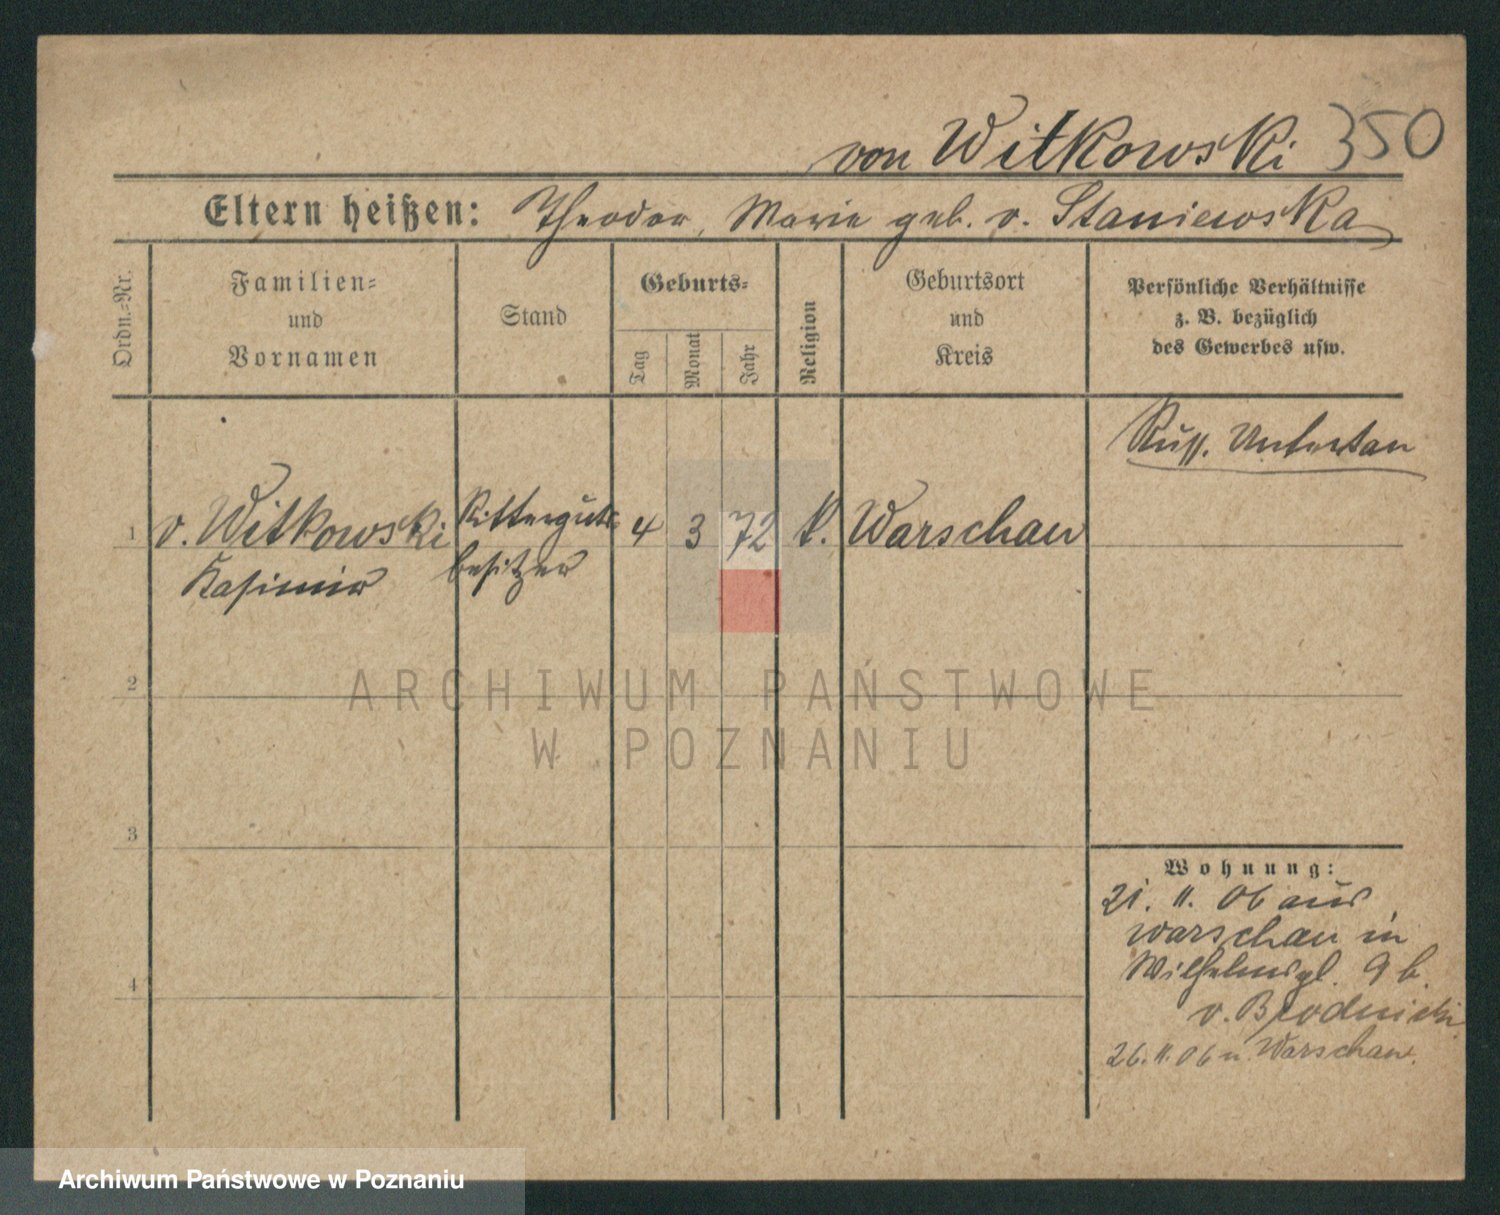 von Witkowski 350
Eltern heißen: Theodor, Marie geb. v. Staniewska
Ordn.-Nr.
Familien-
und
Vornamen
Stand
Geburts-
Tag
Monat
Jahr
Religion
Geburtsort
und
Kreis
Persönliche Verhältnisse
z. B. bezüglich
des Gewerbes usw.
Russ. Untertan
1 v. Witkowski Ritterguts- 4 3 72 k. Warschau
Kasimir besitzer
2
ARCHIWUM PAŃSTWOWE
W POZNANIU
3
Wohnung:
21. 11. 06 aus
Warschau in
Wilhelmspl. 9 b.
v. Brodnicki
4
26. 11. 06 n. Warschau.
Archiwum Państwowe w Poznaniu